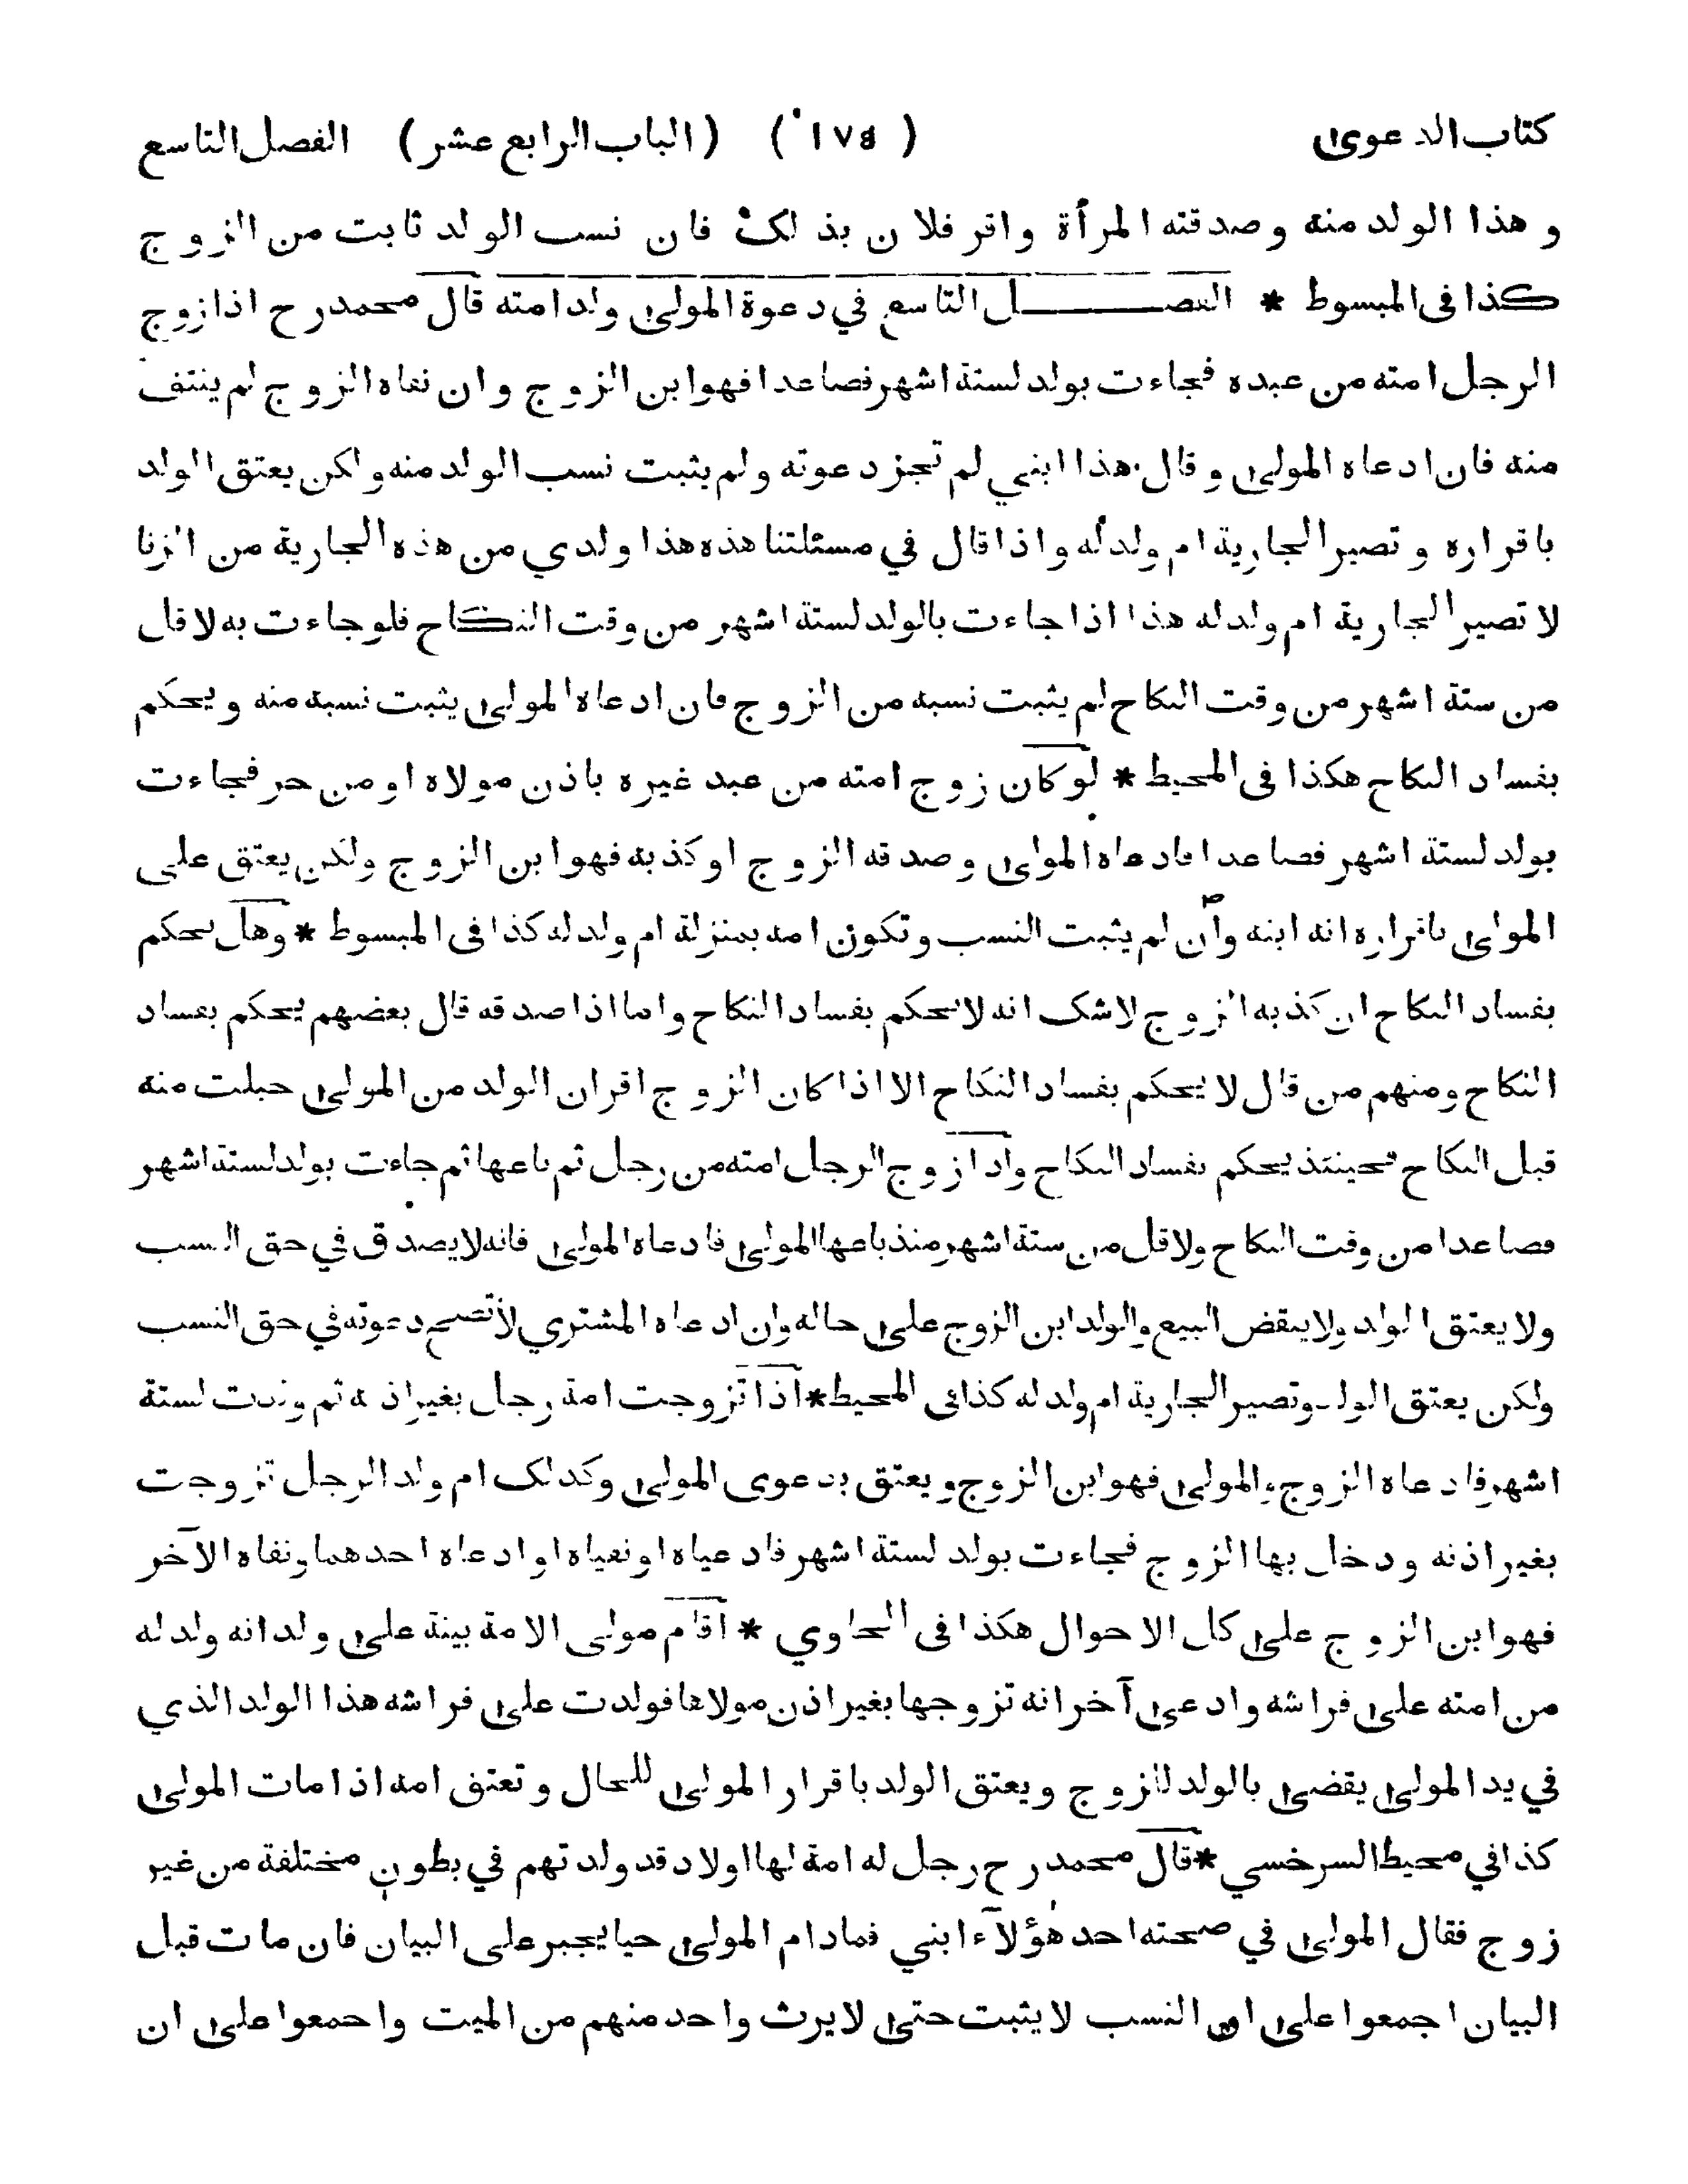 كتاب الدعوى ( ١٧٥ ) (الباب الرابع عشر) الفصل التاسع
و هذا الولد منه و صدقته المرأة واقر فلان بذلك فان نسب الولد ثابت من الزوج
كذا فى المبسوط * الفصــــل التاسع في دعوة المولى ولد امته قال محمد رح اذا زوج
الرجل امته من عبده فجاءت بولد لستة اشهر فصاعدا فهو ابن الزوج وان نفاه الزوج لم ينتف
منه فان ادعاه المولى وقال هذا ابني لم تجز دعوته ولم يثبت نسب الولد منه ولكن يعتق الولد
باقراره و تصير الجارية ام ولد له واذا قال في مسئلتنا هذه هذا ولدي من هذه الجارية من الزنا
لا تصير الجارية ام ولد له هذا اذا جاءت بالولد لستة اشهر من وقت النكاح فلو جاءت به لاقل
من ستة اشهر من وقت النكاح لم يثبت نسبه من الزوج فان ادعاه المولى يثبت نسبه منه و يحكم
بفساد النكاح هكذا فى المحيط * لو كان زوج امته من عبد غيره باذن مولاه او من حر فجاءت
بولد لستة اشهر فصاعدا فادعاه المولى و صدقه الزوج او كذبه فهو ابن الزوج ولكن يعتق على
المولى باقراره انه ابنه وان لم يثبت النسب و تكون امه بمنزلة ام ولد له كذا فى المبسوط * وهل يحكم
بفساد النكاح ان كذبه الزوج لاشك انه لا يحكم بفساد النكاح واما اذا صدقه قال بعضهم يحكم بفساد
النكاح ومنهم من قال لا يحكم بفساد النكاح الا اذا كان الزوج اقر ان الولد من المولى حبلت منه
قبل النكاح فحينئذ يحكم بفساد النكاح واذا زوج الرجل امته من رجل ثم باعها ثم جاءت بولد لستة اشهر
فصاعدا من وقت النكاح ولاقل من ستة اشهر منذ باعها المولى فادعاه المولى فانه لا يصدق في حق النسب
ولا يعتق الولد ولا ينقض البيع والولد ابن الزوج على حاله وان ادعاه المشتري لا تصح دعوته في حق النسب
ولكن يعتق الولد وتصير الجارية ام ولد له كذا في المحيط * اذا تزوجت امة رجل بغير اذنه ثم ولدت لستة
اشهر فادعاه الزوج والمولى فهو ابن الزوج و يعتق بدعوى المولى وكذلك ام ولد الرجل تزوجت
بغير اذنه ودخل بها الزوج فجاءت بولد لستة اشهر فادعياه او نفياه او ادعاه احدهما ونفاه الآخر
فهو ابن الزوج على كل الاحوال هكذا فى الحاوي * اقام مولى الامة بينة على ولد انه ولد له
من امته على فراشه وادعى آخر انه تزوجها بغير اذن مولاها فولدت على فراشه هذا الولد الذي
في يد المولى يقضى بالولد للزوج ويعتق الولد باقرار المولى للحال و تعتق امه اذا مات المولى
كذا في محيط السرخسي * قال محمد رح رجل له امة لها اولاد قد ولدتهم في بطون مختلفة من غير
زوج فقال المولى في صحته احد هؤلاء ابني فمادام المولى حيا يجبر على البيان فان مات قبل
البيان اجمعوا على ان النسب لا يثبت حتى لا يرث واحد منهم من الميت واجمعوا على ان